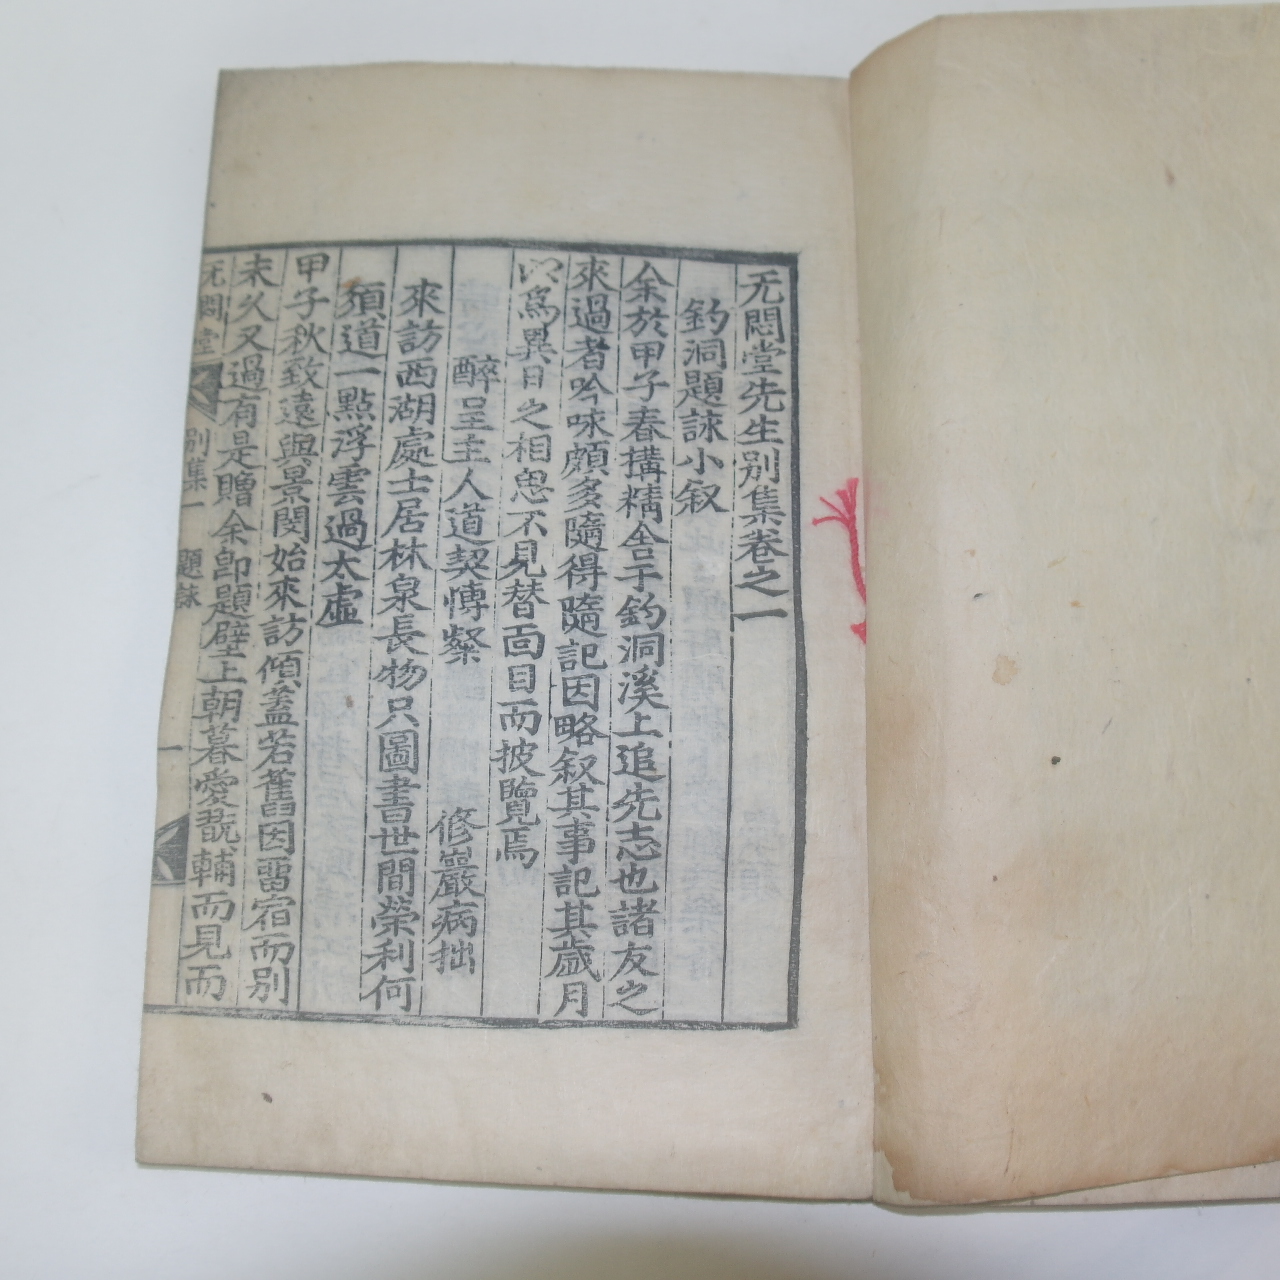 无悶堂先生別集卷之一
釣洞題詠小叙
余於甲子春搆精舍于釣洞溪上追先志也諸友之
來過者吟咏頗多隨得隨記因略叙其事記其歲月
以爲異日之相思不見替面目而披覽焉
醉呈主人道契愽粲 修巖病拙
來訪西湖處士居林泉長物只圖書世間榮利何
須道一點浮雲過太虛
甲子秋致遠與景閔始來訪傾盖若舊因留宿而別
未久又過有是贈余卽題壁上朝暮愛翫輛而見而
无悶堂 別集一 題詠 一